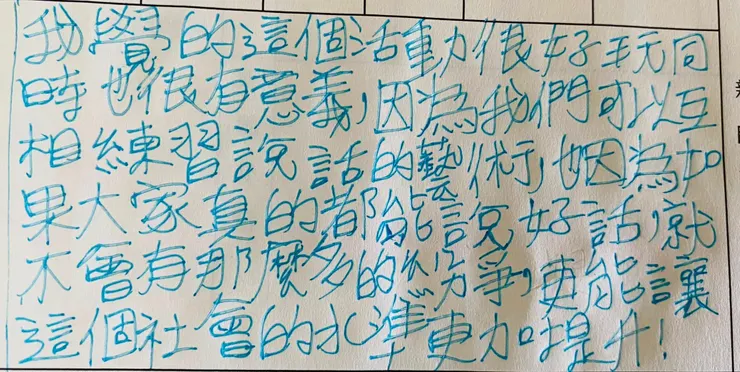 我覺的這個活動很好玩同
時也很有意義,因為我們可以互
相練習說話的藝術,也因為如
果大家真的都能說好話,就
不會有那麼多的紛爭,更能讓
這個社會的水準更加提升!